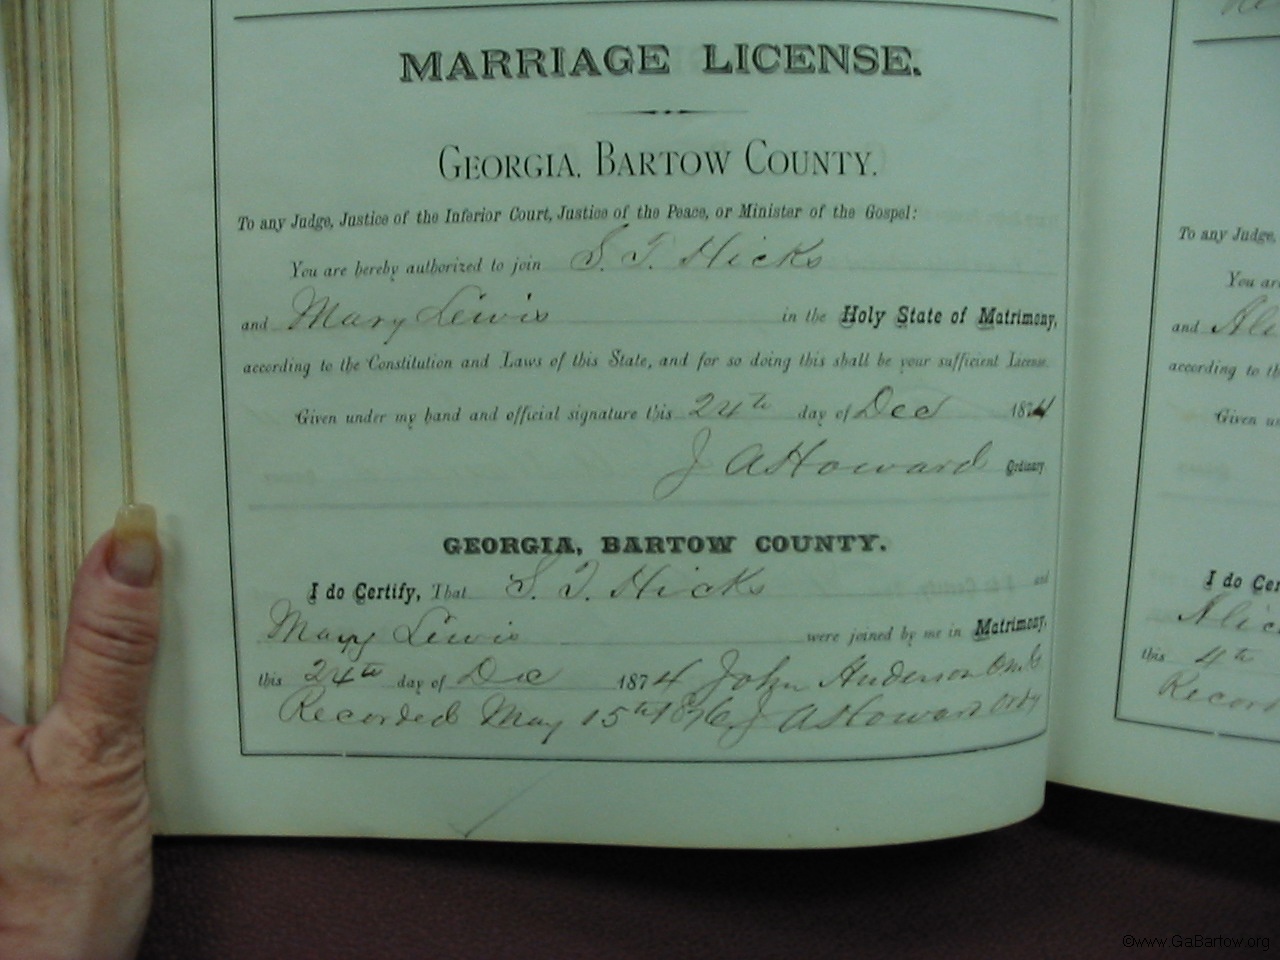 MARRIAGE LICENSE.
GEORGIA. BARTOW COUNTY.
To any Judge, Justice of the Inferior Court, Justice of the Peace, or Minister of the Gospel:
You are hereby authorized to join S. T. Hicks
and Mary Lewis in the Holy State of Matrimony,
according to the Constitution and Laws of this State, and for so doing this shall be your sufficient License.
Given under my hand and official signature this 24th day of Dec 1874
J A Howard Ordinary
GEORGIA, BARTOW COUNTY.
I do Certify, That S. T. Hicks and
Mary Lewis were joined by me in Matrimony,
this 24th day of Dec 1874 John Anderson
Recorded May 15th 1876 J A Howard Ordy
To any Judge,
You are
and
according to th
Given un
I do Cer
Alic
this 4th
Record
©www.GaBartow.org